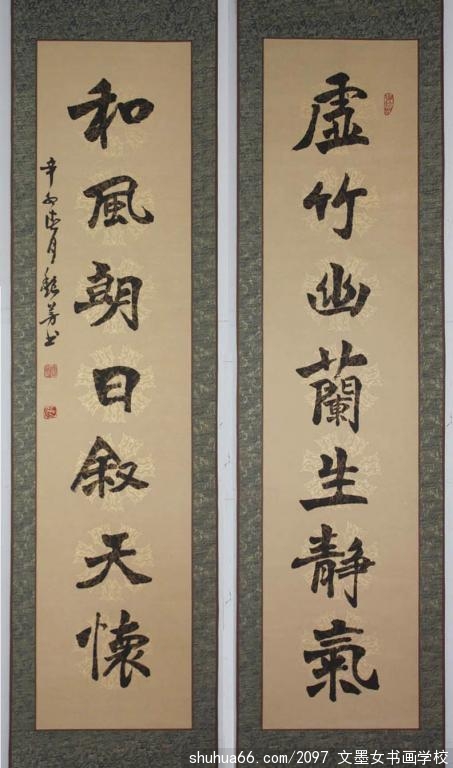 虛竹幽蘭生静氣
和風朝日叙天懷
辛卯 月 芳书
shuhua66.com/2097 文墨女书画学校